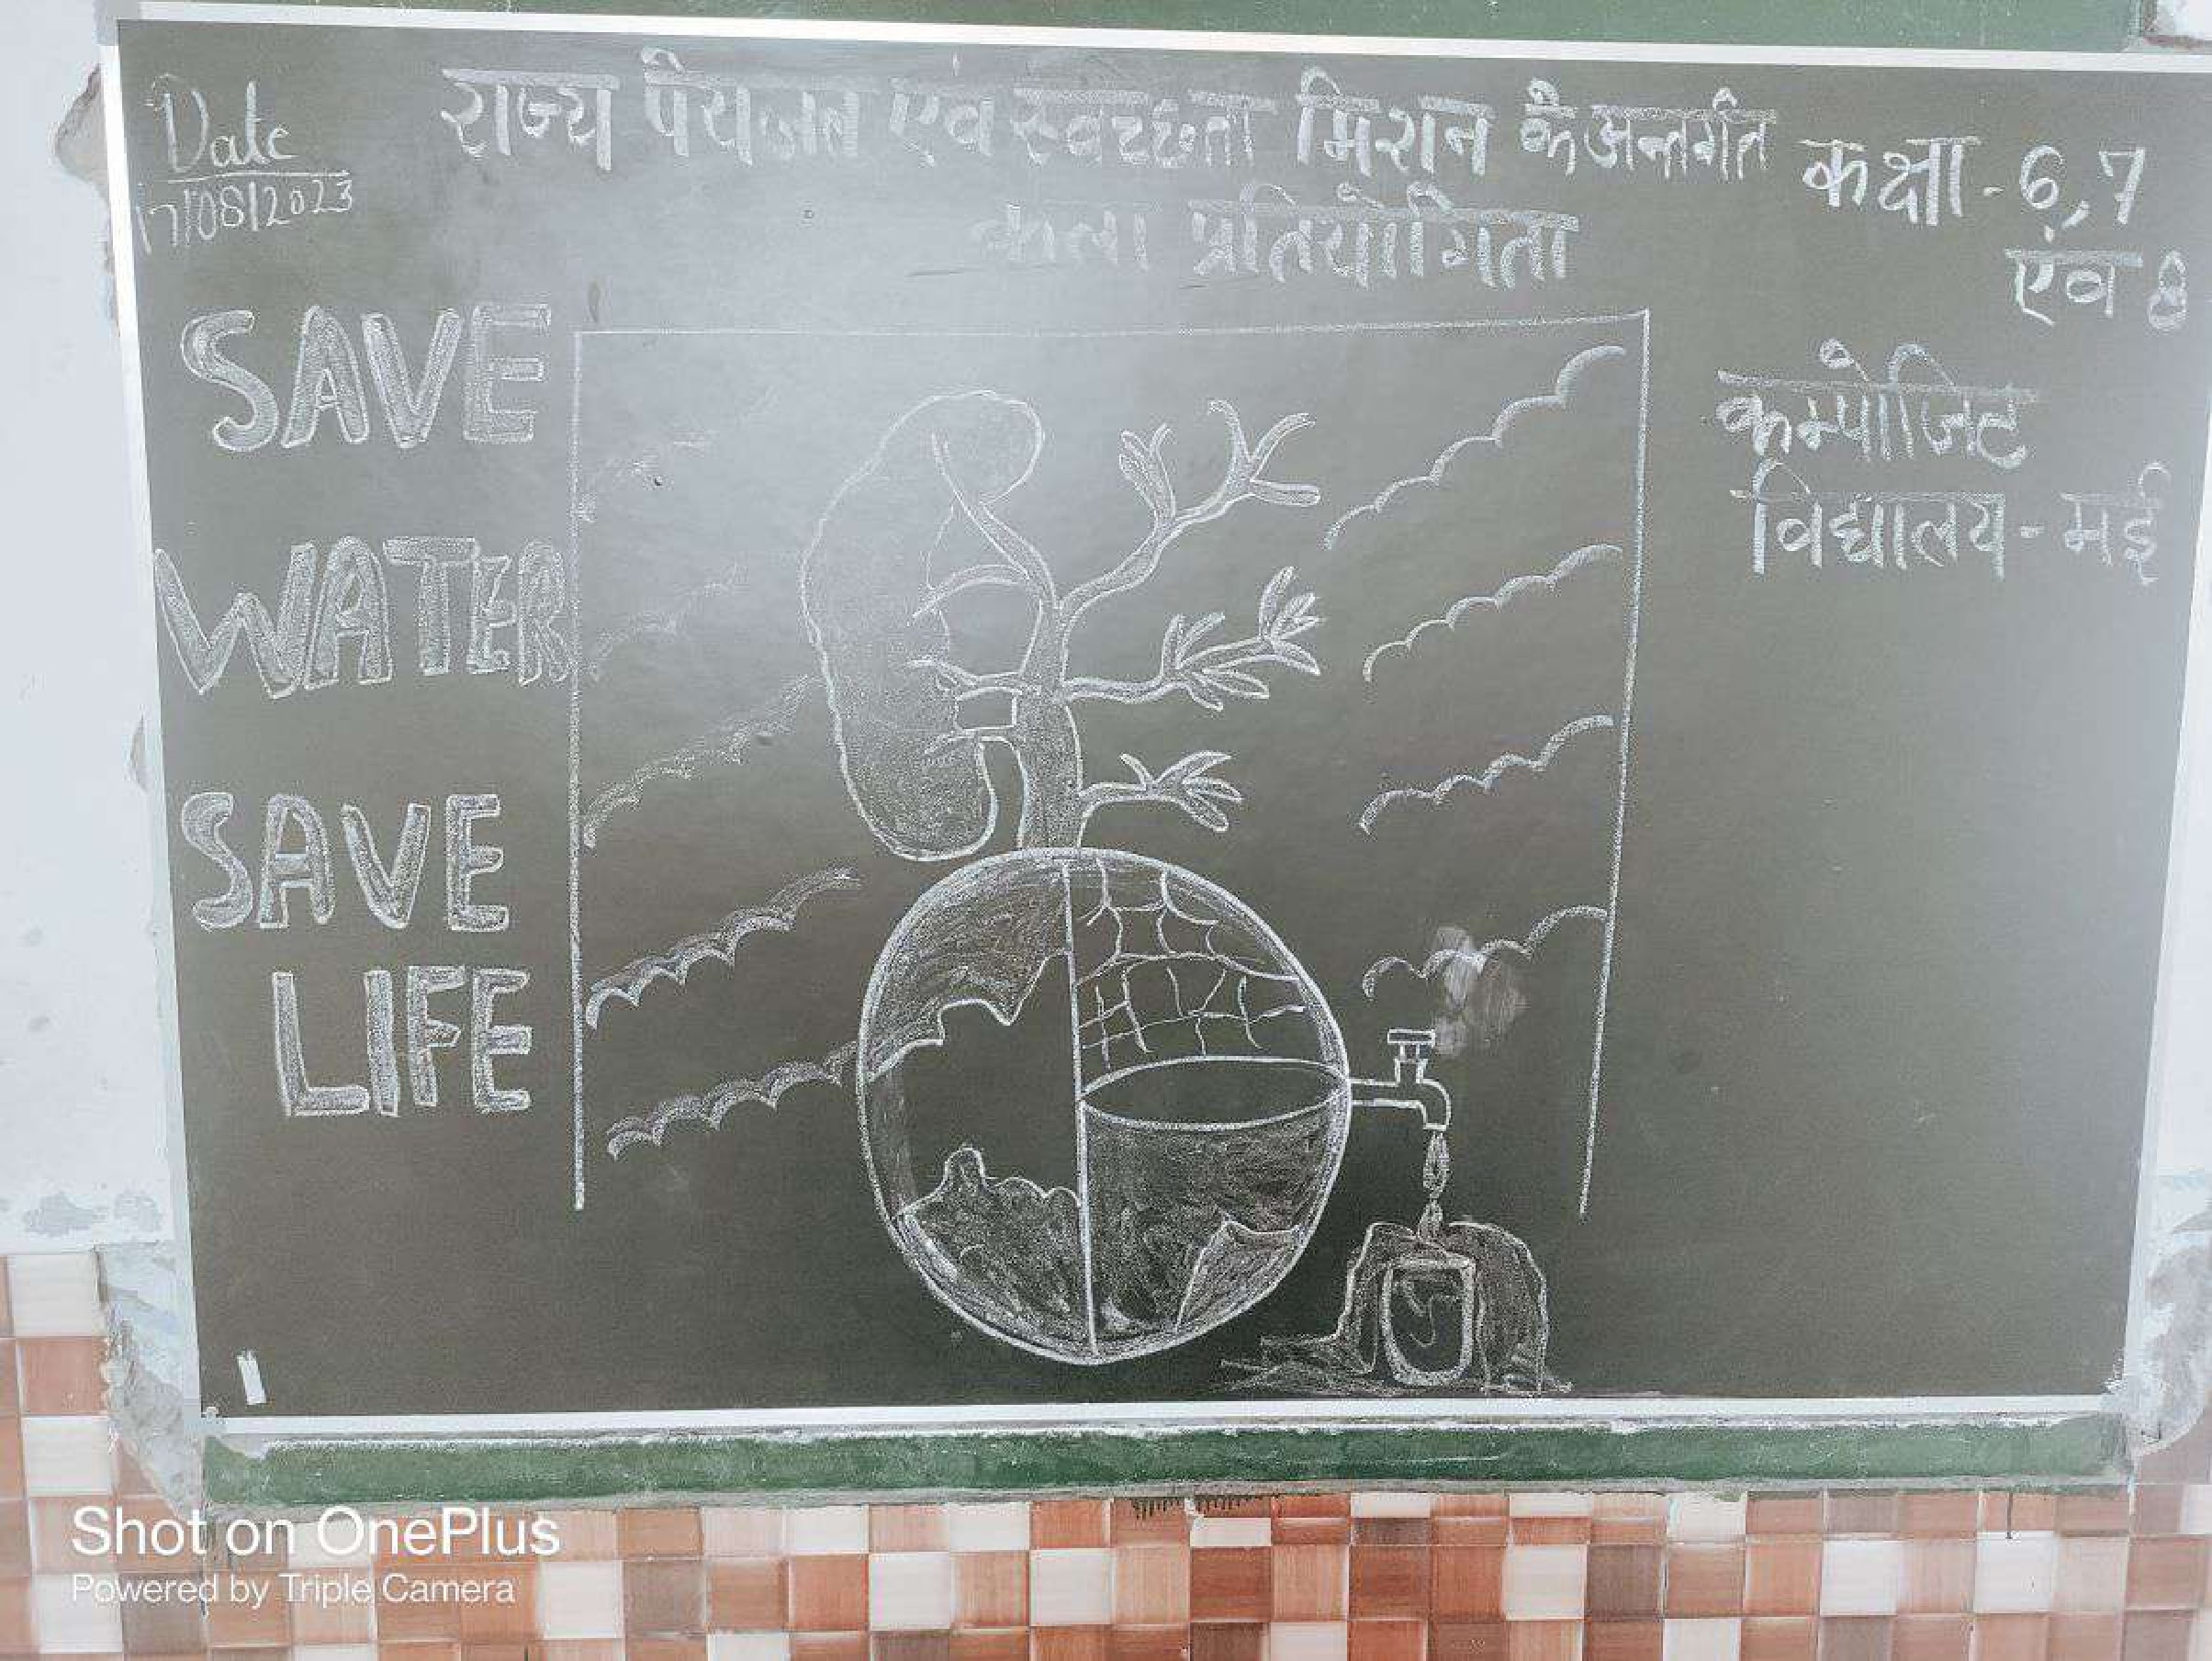 Date
17/08/2023
राज्य पेयजल एंव स्वच्छता मिशन के अन्तर्गत
कला प्रतियोगिता
कक्षा - 6, 7
एंव 8
कम्पोजिट
विद्यालय - मई
SAVE
WATER
SAVE
LIFE
Shot on OnePlus
Powered by Triple Camera